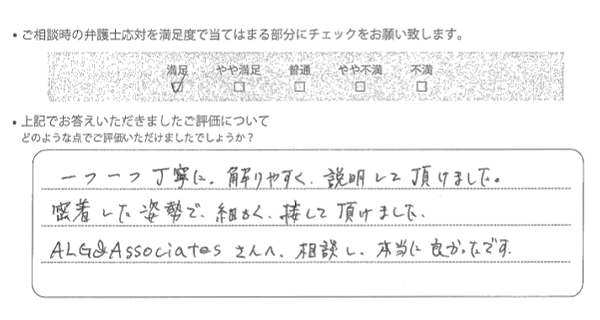 ・ご相談時の弁護士応対を満足度で当てはまる部分にチェックをお願い致します。
満足 やや満足 普通 やや不満 不満
☑ □ □ □ □
・上記でお答えいただきましたご評価について
どのような点でご評価いただけましたでしょうか?
一つ一つ丁寧に、解りやすく、説明して頂けました。
密着した姿勢で、細かく、接して頂けました。
ALG&Associatesさんへ、相談し、本当に良かったです.